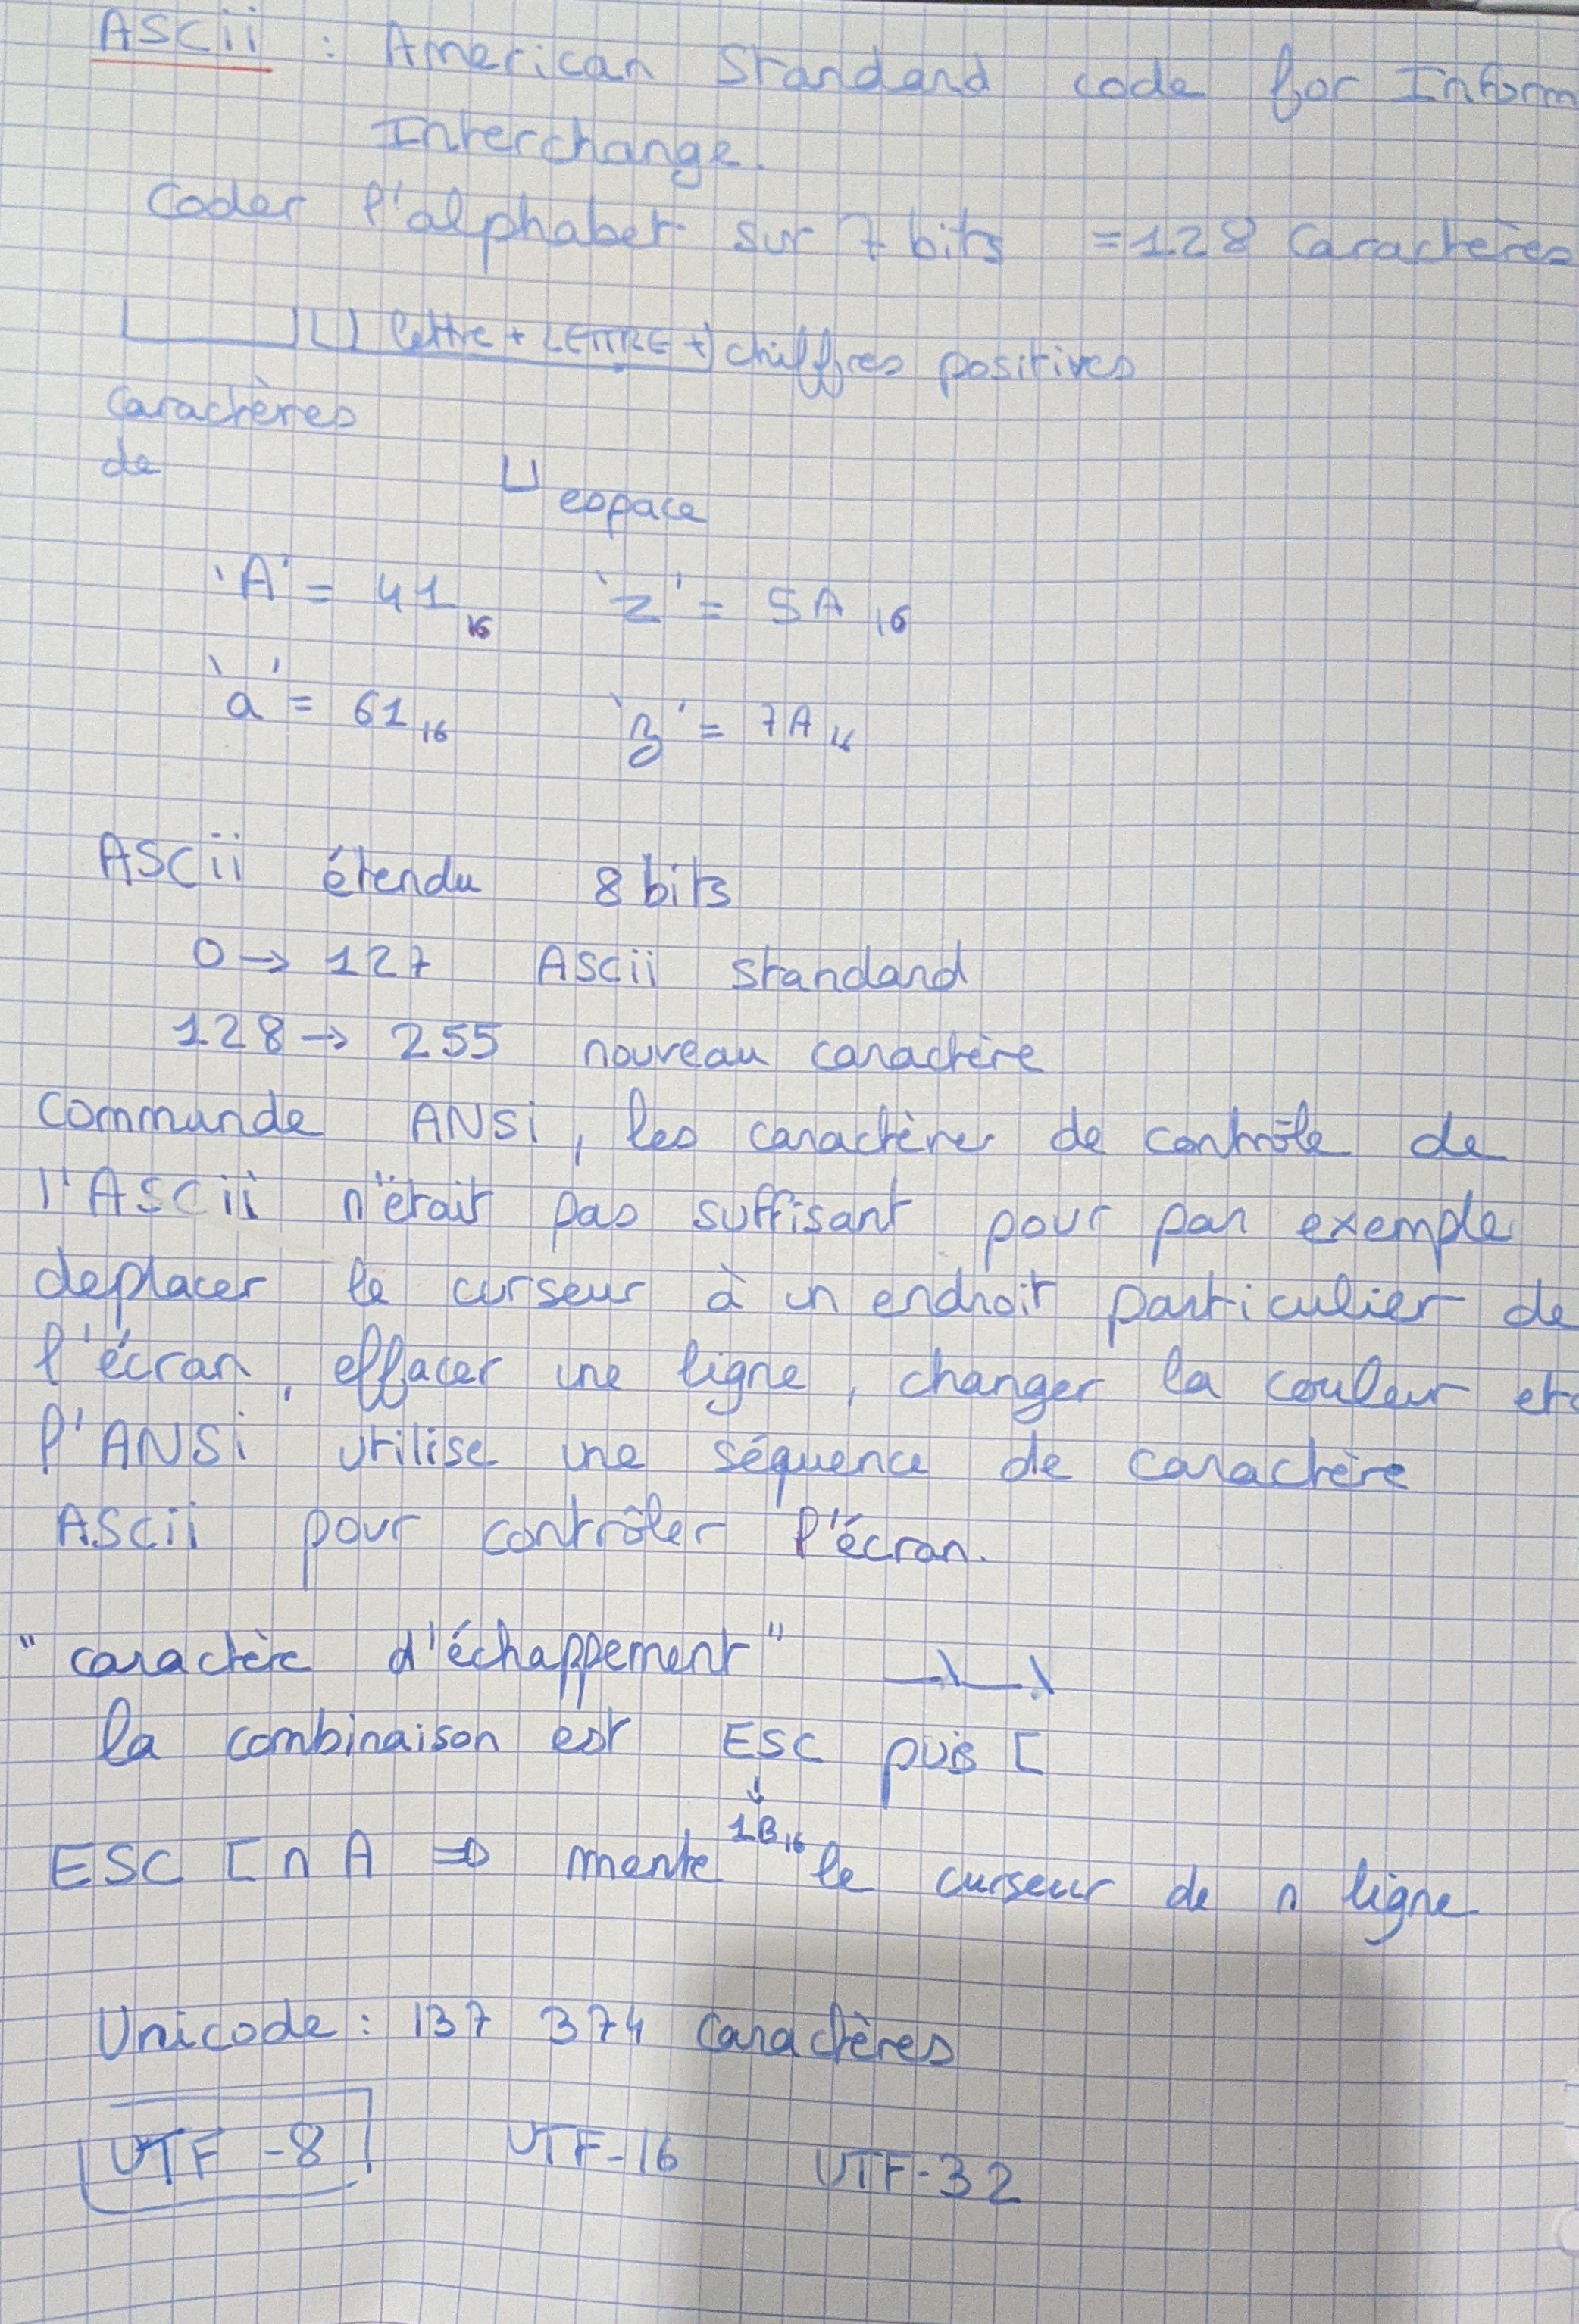 ASCii : American Standard code for Inform
Interchange.
Coder l'alphabet sur 7 bits = 128 Caractères
lettre + LETTRE + chiffres positives
caractères
de
espace
'A' = 41 16 'Z' = 5A 16
'a' = 61 16 'z' = 7A 16
ASCii étendu 8 bits
0 → 127 ASCii standard
128 → 255 nouveau caractère
Commande ANSi, les caractères de contrôle de
l'ASCii n'était pas suffisant pour par exemple
deplacer le curseur à un endroit particulier de
l'écran, effacer une ligne, changer la couleur etc
l'ANSi utilise une séquence de caractère
ASCii pour contrôler l'écran.
"caractère d'échappement"
la combinaison est ESC puis [
↓
1B 16
ESC [ n A ⇒ monte le curseur de n ligne
Unicode : 137 374 caractères
UTF-8 UTF-16 UTF-32